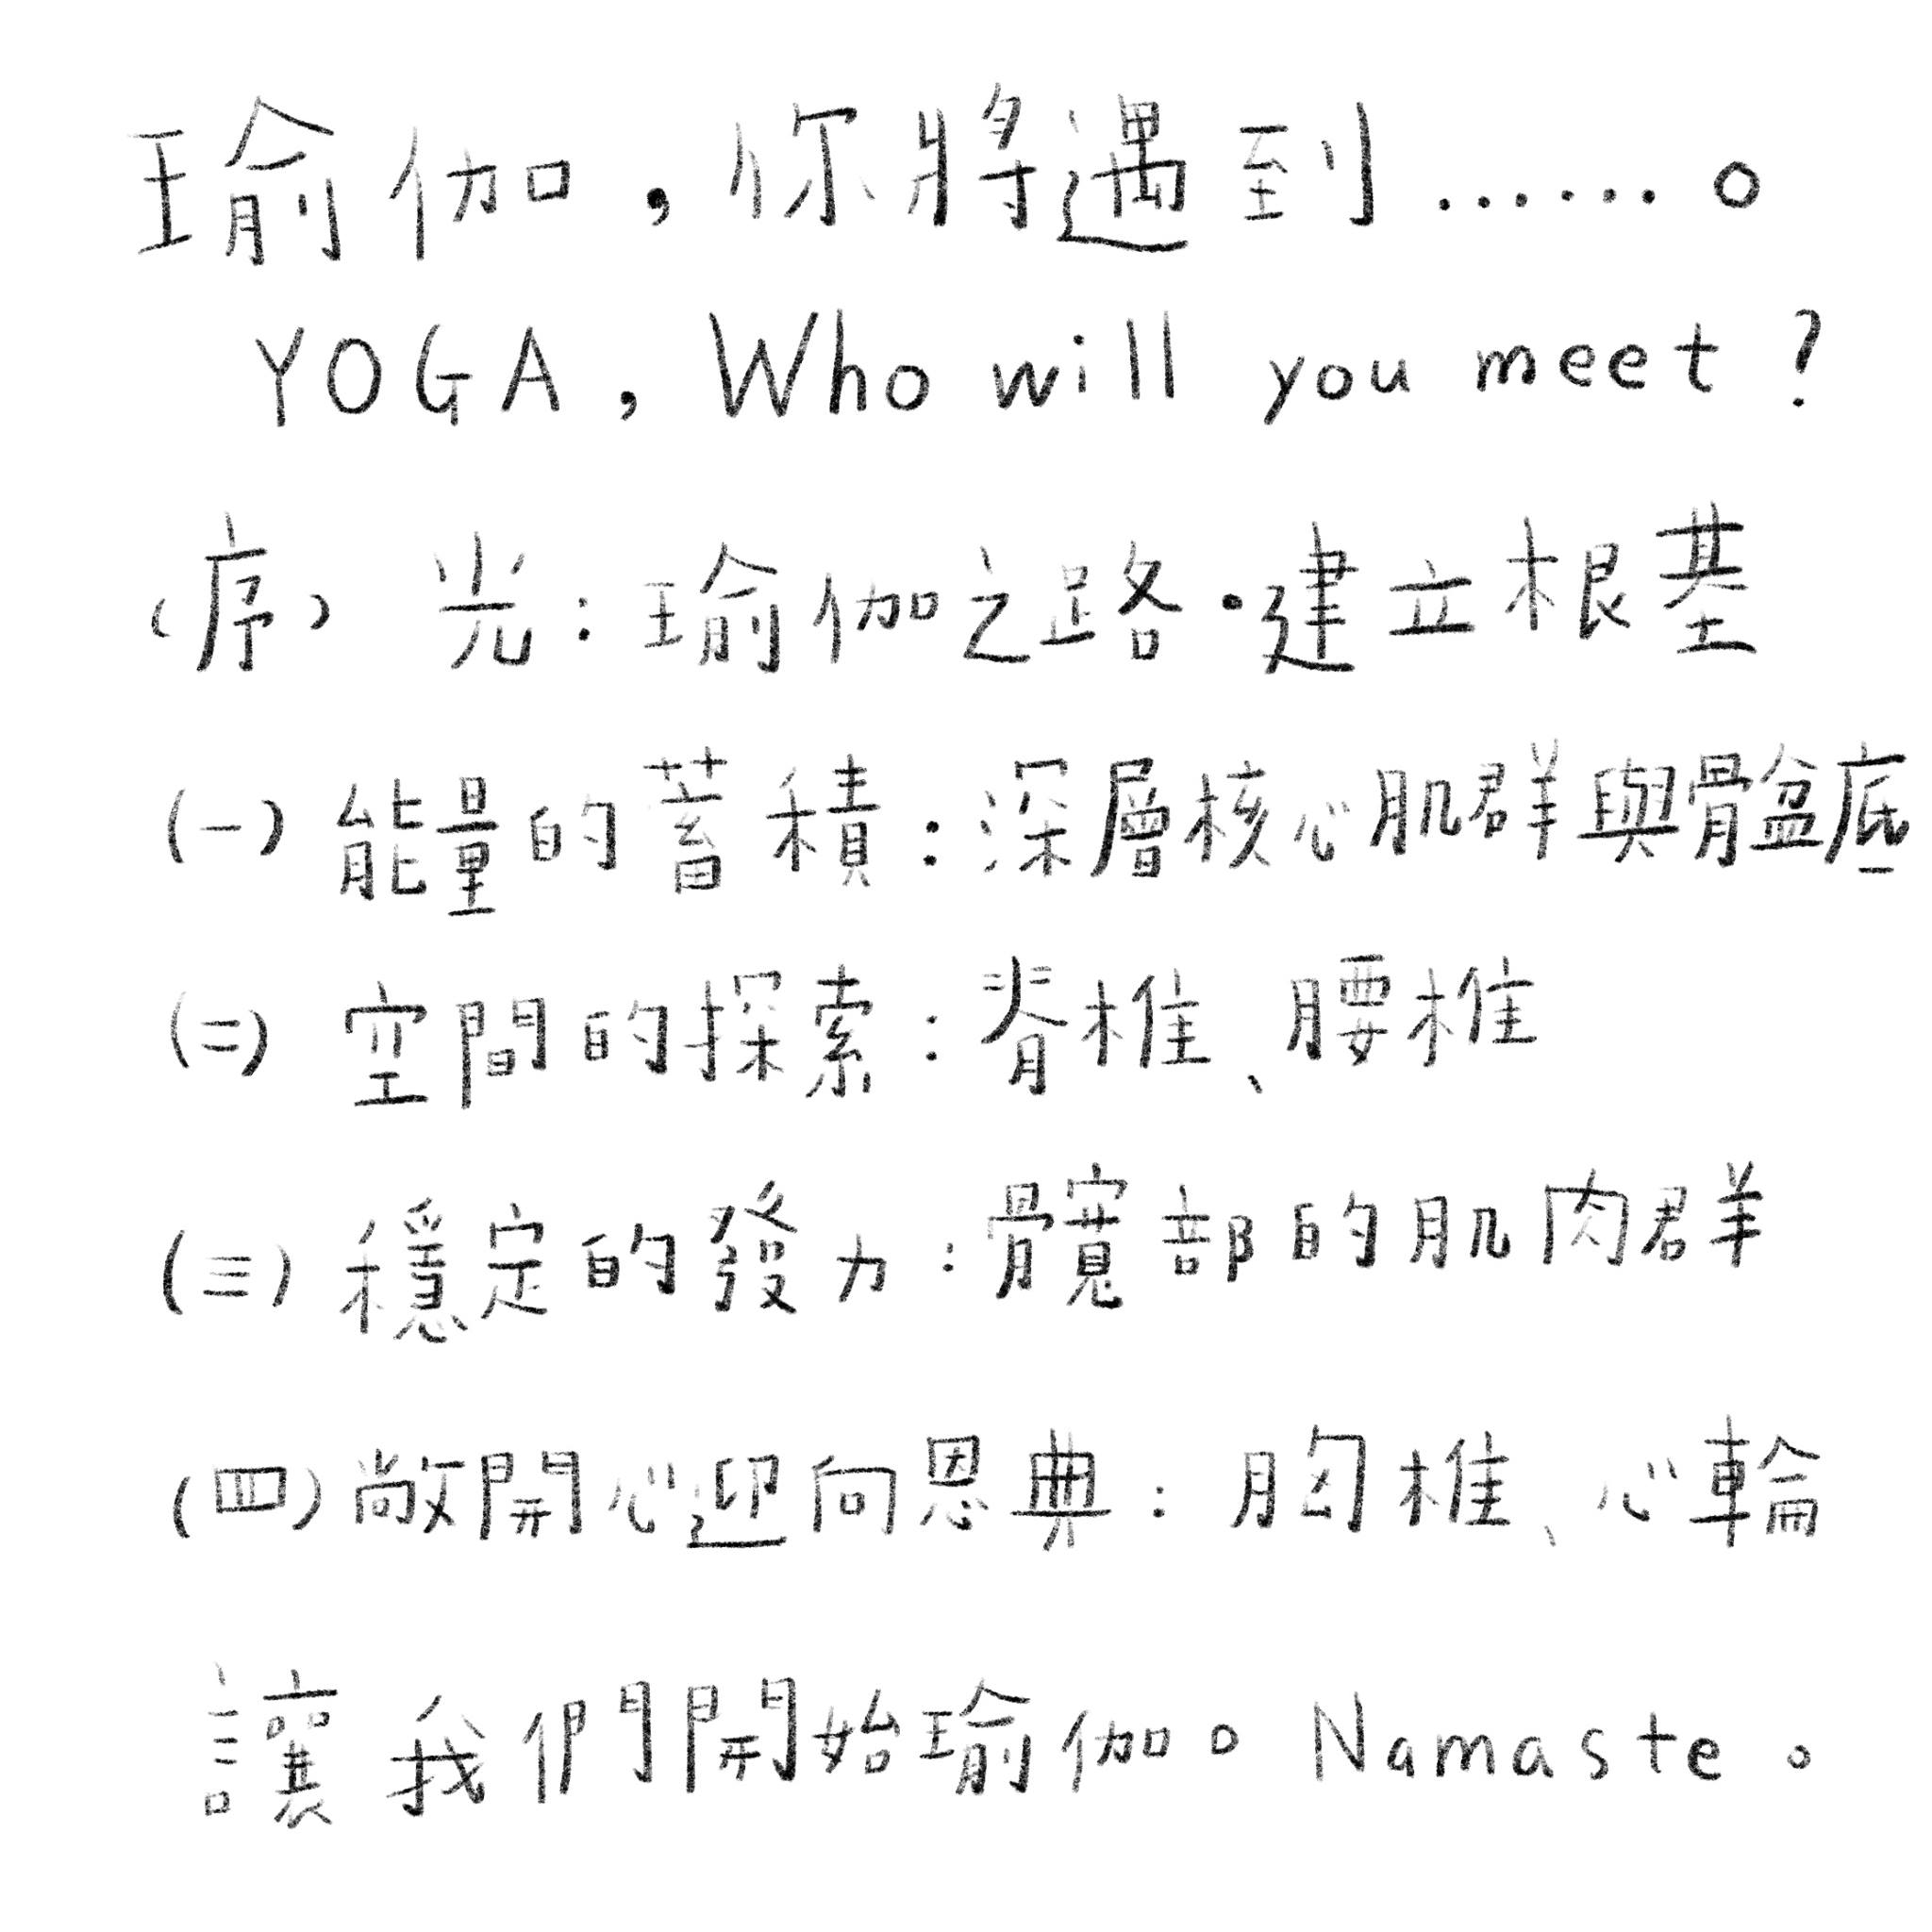 瑜伽，你將遇到……。
YOGA, Who will you meet?
（序）光：瑜伽之路·建立根基
（一）能量的蓄積：深層核心肌群與骨盆底
（二）空間的探索：脊椎、腰椎
（三）穩定的發力：髖部的肌肉群
（四）敞開心迎向恩典：胸椎、心輪
讓我們開始瑜伽。Namaste。